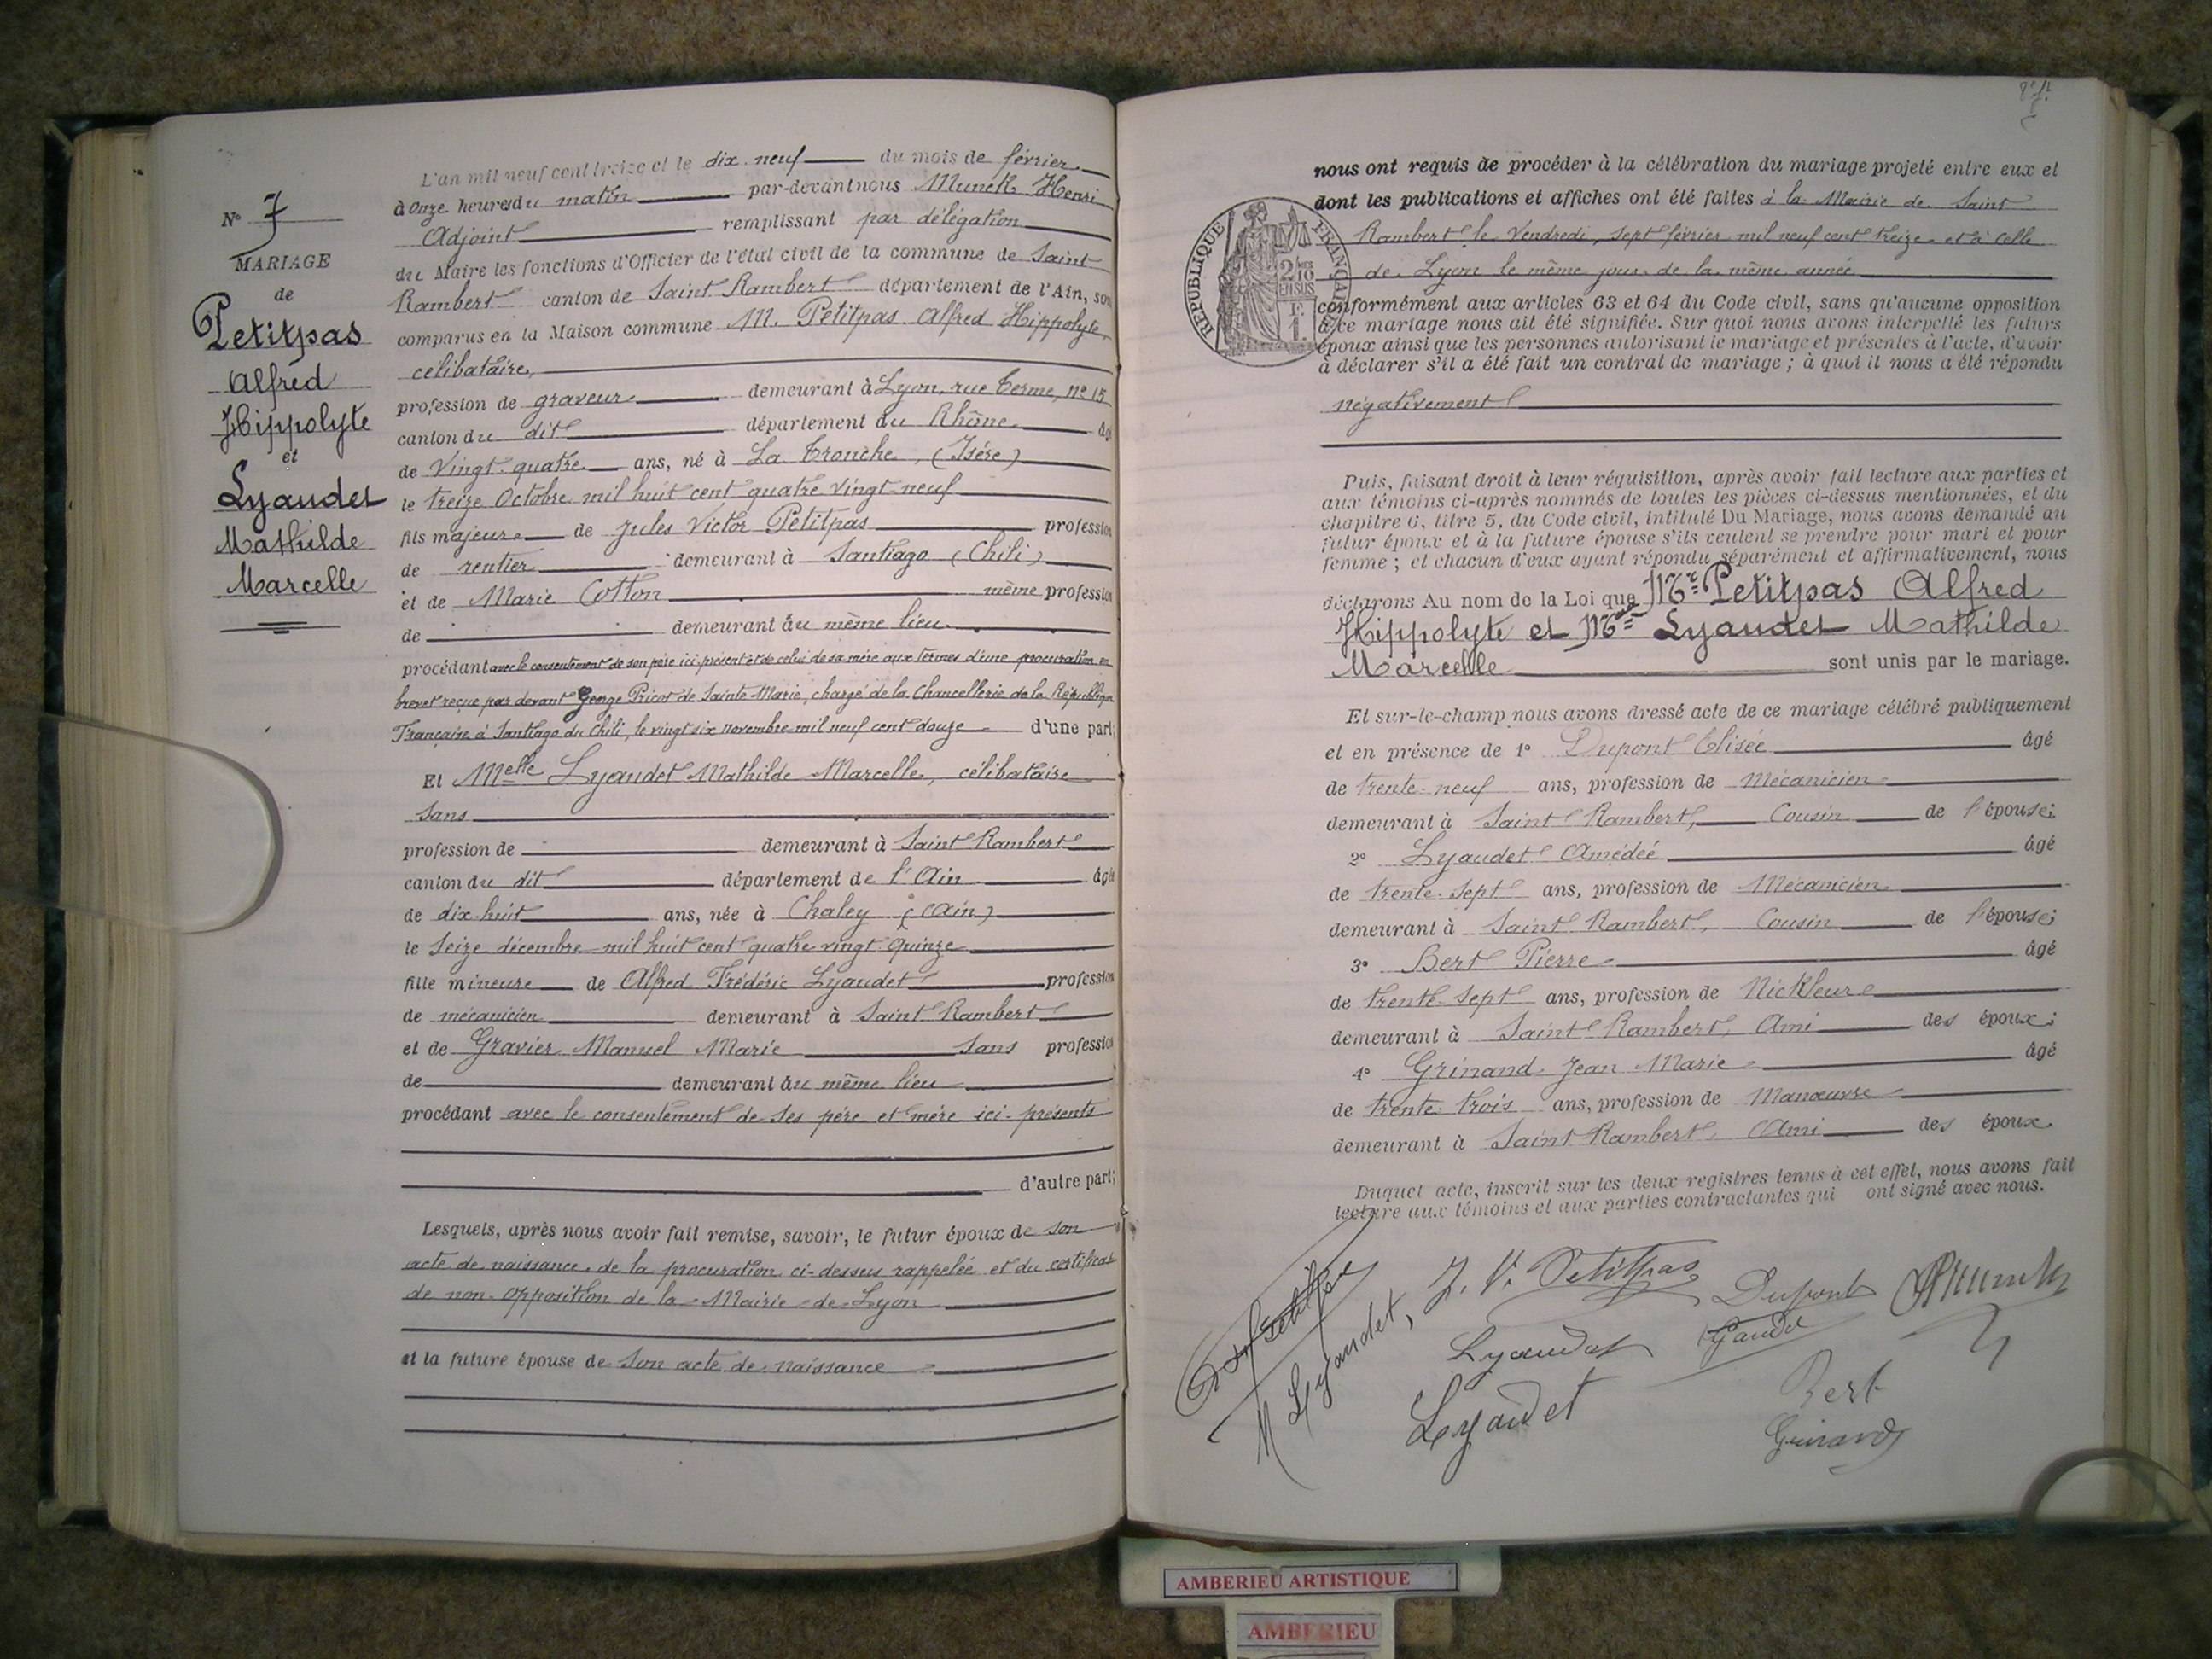 N° 7
MARIAGE
de
Petitpas
Alfred
Hippolyte
et
Lyaudet
Mathilde
Marcelle
L'an mil neuf cent treize et le dix neuf du mois de février
à onze heures du matin par-devant nous Munck Henri
Adjoint remplissant par délégation
du Maire les fonctions d'Officier de l'état civil de la commune de Saint
Rambert canton de Saint Rambert département de l'Ain, son
comparus en la Maison commune M. Petitpas Alfred Hippolyte
célibataire,
profession de graveur demeurant à Lyon, rue Terme, n° 15
canton du dit département du Rhône âg
de Vingt quatre ans, né à La Tronche, (Isère)
le treize Octobre mil huit cent quatre vingt neuf
fils majeur de Jules Victor Petitpas profession
de rentier demeurant à Santiago (Chili)
et de Marie Cotton même profession
de demeurant au même lieu
procédant avec le consentement de son père ici présent et de celui de sa mère aux termes d'une procuration en
brevet reçue par devant George Pricot de Sainte-Marie, chargé de la Chancellerie de la République
Française à Santiago du Chili, le vingt six novembre mil neuf cent douze d'une part;
Et Melle Lyaudet Mathilde Marcelle, célibataire
sans
profession de demeurant à Saint Rambert
canton du dit département de l'Ain âgé
de dix-huit ans, née à Chaley (Ain)
le seize décembre mil huit cent quatre vingt quinze
fille mineure de Alfred Frédéric Lyaudet profession
de mécanicien demeurant à Saint Rambert
et de Gravier Manuel Marie Sans profession
de demeurant au même lieu
procédant avec le consentement de ses père et mère ici-présents
d'autre part;
Lesquels, après nous avoir fait remise, savoir, le futur époux de son
acte de naissance, de la procuration ci-dessus rappelée et du certificat
de non-opposition de la Mairie de Lyon
et la future épouse de son acte de naissance
nous ont requis de procéder à la célébration du mariage projeté entre eux et
dont les publications et affiches ont été faites à la Mairie de Saint
Rambert le Vendredi, sept février mil neuf cent treize et à celle
de Lyon le même jour de la même année
RÉPUBLIQUE FRANÇAISE
2/10 EN SUS
1 F.
conformément aux articles 63 et 64 du Code civil, sans qu'aucune opposition
à ce mariage nous ait été signifiée. Sur quoi nous avons interpellé les futurs
époux ainsi que les personnes autorisant le mariage et présentes à l'acte, d'avoir
à déclarer s'il a été fait un contrat de mariage ; à quoi il nous a été répondu
négativement
Puis, faisant droit à leur réquisition, après avoir fait lecture aux parties et
aux témoins ci-après nommés de toutes les pièces ci-dessus mentionnées, et du
chapitre 6, titre 5, du Code civil, intitulé Du Mariage, nous avons demandé au
futur époux et à la future épouse s'ils veulent se prendre pour mari et pour
femme ; et chacun d'eux ayant répondu séparément et affirmativement, nous
déclarons Au nom de la Loi que Mr Petitpas Alfred
Hippolyte et Melle Lyaudet Mathilde
Marcelle sont unis par le mariage.
Et sur-le-champ nous avons dressé acte de ce mariage célébré publiquement
et en présence de 1° Dupont Elisée âgé
de trente-neuf ans, profession de Mécanicien
demeurant à Saint Rambert, Cousin de l'épouse;
2° Lyaudet Amédée âgé
de trente-sept ans, profession de Mécanicien
demeurant à Saint Rambert, Cousin de l'épouse;
3° Bert Pierre âgé
de trente-sept ans, profession de Nickleur
demeurant à Saint Rambert, Ami des époux;
4° Grinand Jean Marie âgé
de trente trois ans, profession de Manœuvre
demeurant à Saint Rambert, Ami des époux
Duquel acte, inscrit sur les deux registres tenus à cet effet, nous avons fait
lecture aux témoins et aux parties contractantes qui ont signé avec nous.
Petitpas
M Lyaudet, J. V. Petitpas
Dupont
Munck
Lyaudet
Lyaudet
Bert
Grinand
AMBERIEU ARTISTIQUE
AMBERIEU